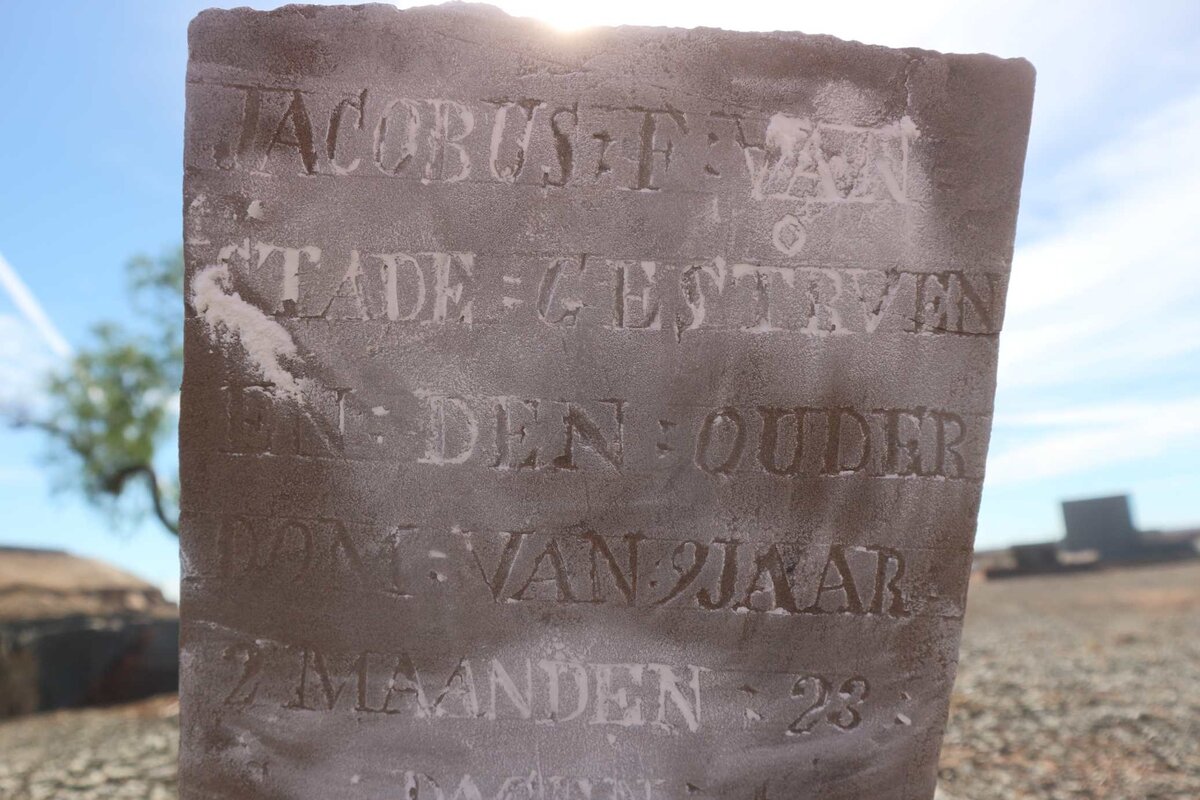 JACOBUS : F : VAN
STADE = GESTRVEN
EN : DEN : OUDER
DOM : VAN : 9 JAAR
2 MAANDEN : 23 :
DAGEN